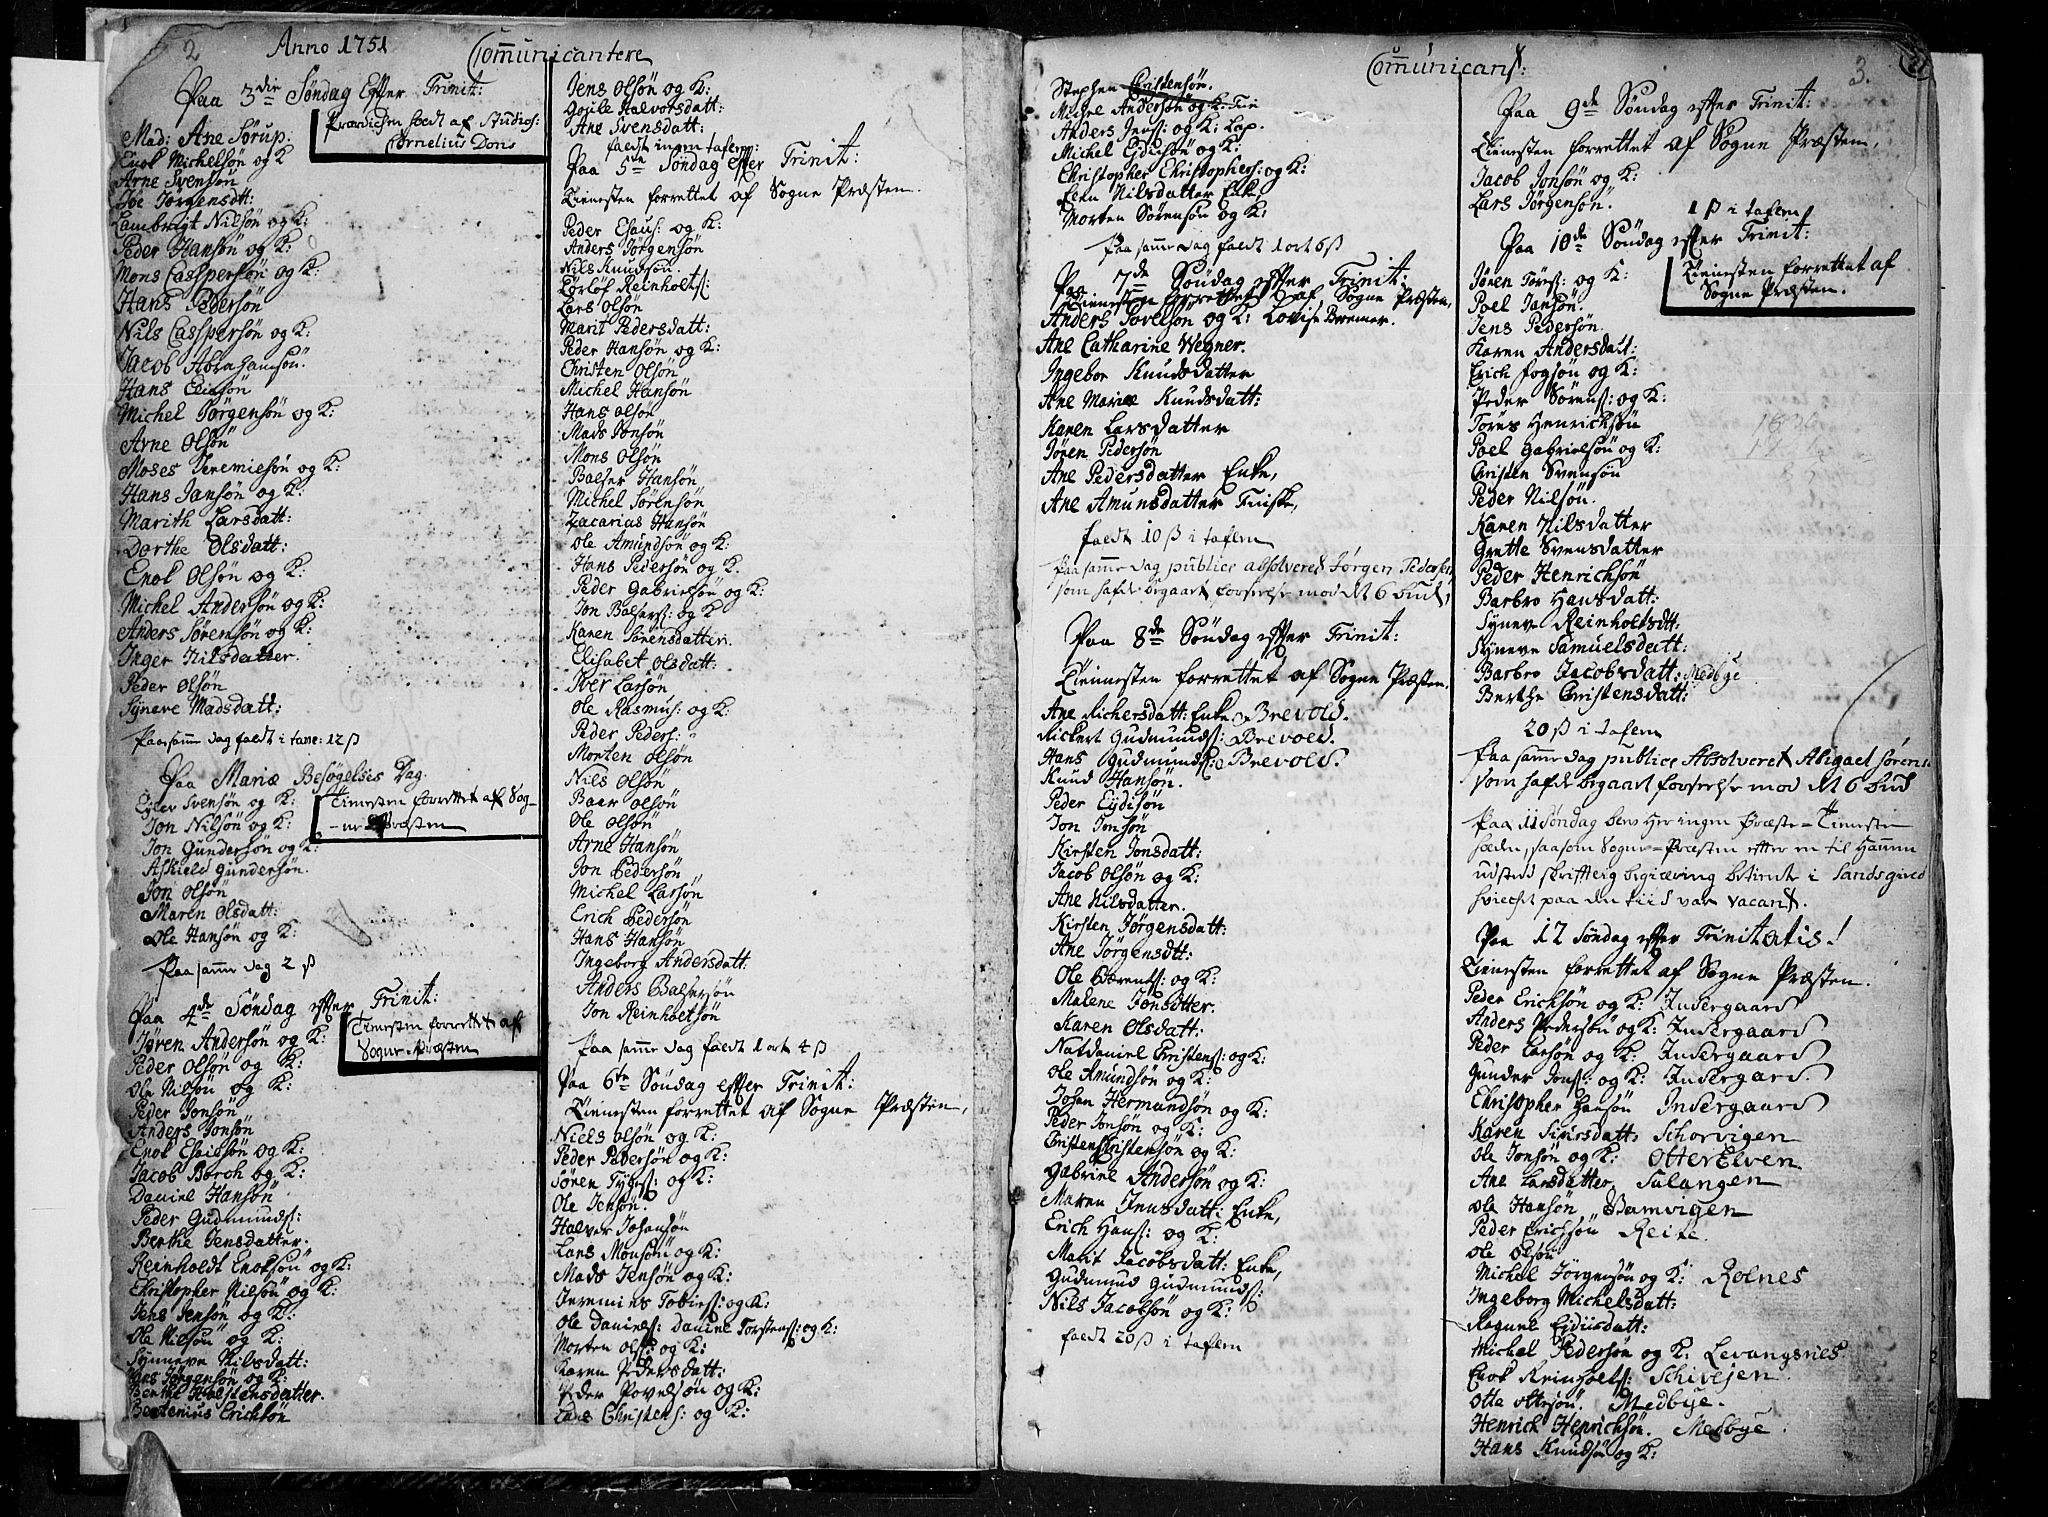 2
Anno 1751
Comunicantere
Paa 3die Søndag Efter Trinit:
Prædichen holdt af Studios:
Cornelius Dons
Mad: Ane Sørup.
Enok Michelsøn og K
Arne Svensøn
Joe Jørgensdtt:
Lambrigt Nilsøn og K:
Peder Hansøn og K:
Mons Casspersøn og K:
Hans Pedersøn
Nils Casspersøn og K:
Jacob Abrahamsøn.
Hans Elissøn
Michel Jørgensøn og K:
Arne Olsøn
Moses Jeremiesøn og K:
Hans Jansøn og K:
Marith Larsdatt:
Dorthe Olsdatt:
Enok Olsøn og K:
Michel Andersøn og K:
Anders Sørensøn og K:
Inger Nilsdatter.
Peder Olsøn
Syneve Madsdatt:
Paa samme dag faldt i tavle: 12 ß
Paa Mariæ Besøgelses Dag.
Tienesten forrettet af Sog-
-ne Præsten
Ejler Svensøn og K:
Jon Nilsøn og K:
Jon Gundersøn og K:
Askield Gundersøn.
Jon Olsøn
Maren Olsdatt:
Ole Hansøn og K:
Paa samme dag 2 ß
Paa 4de Søndag efter Trinit:
Tienesten forrettet af
Sogne Præsten
Jøren Andersøn og K:
Peder Olsøn og K:
Ole Nilsøn og K:
Peder Jonsøn
Anders Jonsøn
Enok Esaissøn og K:
Jacob Borch og K:
Daniel Hansøn
Peder Gudmunds:
Berthe Jensdatter.
Reinholdt Enoksøn og K:
Christopher Nilsøn og K:
Jens Jensøn og K:
Ole Nilsøn og K:
Synneve Nilsdatt:
Lars Jørgensøn og K:
Berthe Holstensdatter.
Bertenius Erichsøn
Jens Olsøn og K:
Gojle Halvorsdatt:
Ane Svensdatt:
faldt ingen taflen:
Paa 5te Søndag efter Trinit:
Tienesten forrettet af Sogne Præsten.
Peder Esaus: og K:
Anders Jørgensøn
Nils Knudsøn.
Lorlof Reinholts:
Lars Olsøn
Marit Pedersdatt:
Peder Hansøn og K:
Christen Olsøn
Michel Hansøn
Hans Olsøn
Mads Jonsøn
Mons Olsøn
Balser Hansøn
Michel Sørensøn
Zacarias Hansøn
Ole Amundsøn og K:
Hans Pedersøn og K.
Peder Gabrielsøn og K:
Jon Balsers: og K
Karen Sørensdatter.
Elisabet Olsdatt:
Iver Larsøn
Ole Rasmus: og K:
Peder Peders:
Morten Olsøn
Nils Olsøn
Baar Olsøn
Ole Olsøn
Arne Hansøn
Jon Pedersøn
Michel Larsøn
Erich Pedersøn
Hans Hansøn
Ingeborg Andersdatt:
Anders Balsersøn
Jon Reinholtsøn
Paa samme dag faldt 1 ort 4 ß
Paa 6te Søndag efter Trinit:
Tienesten forrettet af Sogne Præsten,
Niels Olsøn og K:
Peder Pedersøn og K:
Søren Tyges: og K:
Ole Jensøn.
Halver Johansøn
Lars Monsøn og K:
Mads Jensøn og K:
Jeremies Tobies: og K:
Ole Daniels: Daniel Torstens: og K:
Morten Ols: og K:
Karen Pedersdatt:
Peder Povelsøn og K:
Lars Christens: og K:
Comunicans:
3.
Stephen Christensøn.
Michel Andersøn og K. Fin
Anders Jens: og K: Lap.
Michel Ejdissøn og K:
Christopher Christophers: og K:
Elen Nilsdatter Enke,
Morten Sørensøn og K:
Paa samme dag faldt 1 ort 6 ß
Paa 7de Søndag efter Trinit:
Tienesten forrettet af Sogne Præsten,
Anders Povelsøn og K: Lovise Bremer.
Ane Catharine Wegner.
Ingebor Knudsdatter
Ane Mariæ Knudsdatt:
Karen Larsdatter
Jøren Pedersøn
Ane Pedersdatter Enke,
Ane Amunsdatter Finske,
faldt 10 ß i taflen
Paa samme dag publice absolveret Jørgen Pedersen
som hafde begaaet forseelse mod det 6 bud,
Paa 8de Søndag efter Trinit:
Tienesten forrettet af Sogne Præsten.
Ane Richersdatt: Enke Brevold.
Rickert Gudmunds: Brevold.
Hans Gudmunds: Brevold.
Knud Hansøn.
Peder Eydisøn
Jon Jonsøn
Kirsten Jonsdatt:
Jacob Olsøn og K:
Ane Nilsdatter.
Kirsten Jørgensdatt:
Ane Jørgensdtt:
Ole Bærents: og K:
Malene Jonsdtter.
Karen Olsdatt:
Nathaniel Christens: og K:
Ole Amundsøn og K:
Johan Hermundsøn og K:
Peder Jonsøn og K:
Christen Christensøn og K:
Gabriel Andersøn og K:
Maren Jensdatt: Enke,
Erich Hans: og K:
Marit Jacobsdatt: Enke,
Gudmund Gudmunds:
Nils Jacobsøn og K:
faldt 20 ß i taflen
Paa 9de Søndag efter Trinit:
Tienesten forrettet af Sogne Præsten,
Jacob Jonsøn og K:
Lars Jørgensøn.
1 ß i taflen
Paa 10de Søndag efter Trinit:
Tienesten forrettet af
Sogne Præsten.
Jøren Tøres: og K:
Poel Jansøn.
Jens Pedersøn.
Karen Andersdatt:
Erich Fogsøn og K:
Peder Sørens: og K:
Tøres Henrichsøn
Poel Gabrielsøn og K:
Christen Svensøn
Peder Nilsøn.
Karen Nilsdatter
Grette Svensdatter
Peder Henrichsøn
Barbro Hansdatt:
Syneve Reinholtsdtt:
Syneve Samuelsdatt:
Barbro Jacobsdatt: Medbye
Berthe Christensdatt:
20 ß i taflen
Paa samme dag publice Absolveret Abigael Sørens:
som hafde begaaet forseelse mod det 6 bud
Paa 11 Søndag blev her ingen Præste-Tienesten
holden, saasom Sogne-Præsten efter en til hannem
udsted skrifftelig begiæring betiente i Sandsgired
hvilchet paa den tiid var vacant.
Paa 12 Søndag efter Trinitatis!
Tienesten forrettet af Sogne Præsten.
Peder Erichsøn og K: Indergaard
Anders Pedersøn og K: Indergaard
Peder Larsøn og K: Indergaard
Gunder Jons: og K: Indergard.
Christopher Hansøn Indergaard
Karen Siursdatt: Schorvigen
Ole Jonsøn og K: OtterElven
Ane Larsdatter Salangen
Ole Hansøn Bamvigen
Peder Erichsøn Reite.
Ole Olsøn
Michel Jørgensøn og K: Rolnes
Ingeborg Michelsdatt:
Ragnel Ejdiisdatt:
Michel Pedersøn og K: Levangsnes.
Enok Reinholts: Schivejen
Otte Ottesøn. Medbye.
Henrich Henrichsøn. Medbye.
Hans Knudsøn og K: